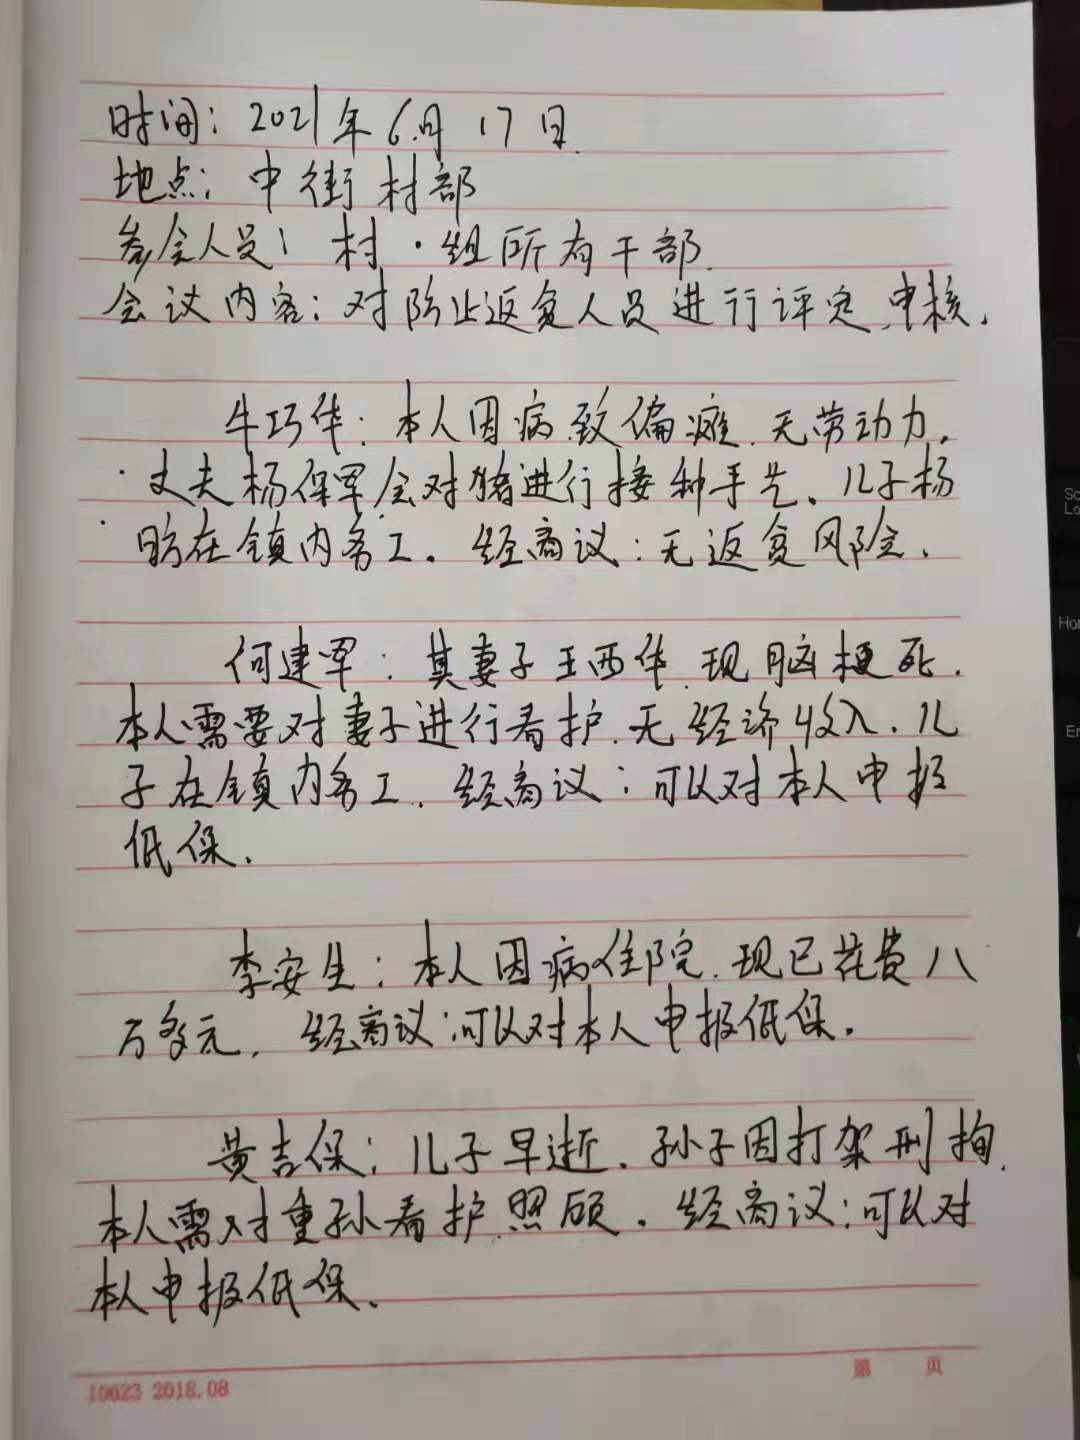 时间：2021年6月17日.
地点：中街村部
参会人员：村.组所有干部.
会议内容：对防止返贫人员进行评定.审核.
牛巧华：本人因病致偏瘫.无劳动力.
丈夫杨保军会对猪进行接种手艺.儿子杨
昉在镇内务工.经商议：无返贫风险.
何建军：其妻子王西华.现脑梗死.
本人需要对妻子进行看护.无经济收入.儿
子在镇内务工.经商议：可以对本人申报
低保.
李安生：本人因病住院.现已花费八
万多元.经商议:可以对本人申报低保.
黄吉保：儿子早逝.孙子因打架刑拘.
本人需对重孙看护.照顾.经商议：可以对
本人申报低保.
第 页
10623 2018.08